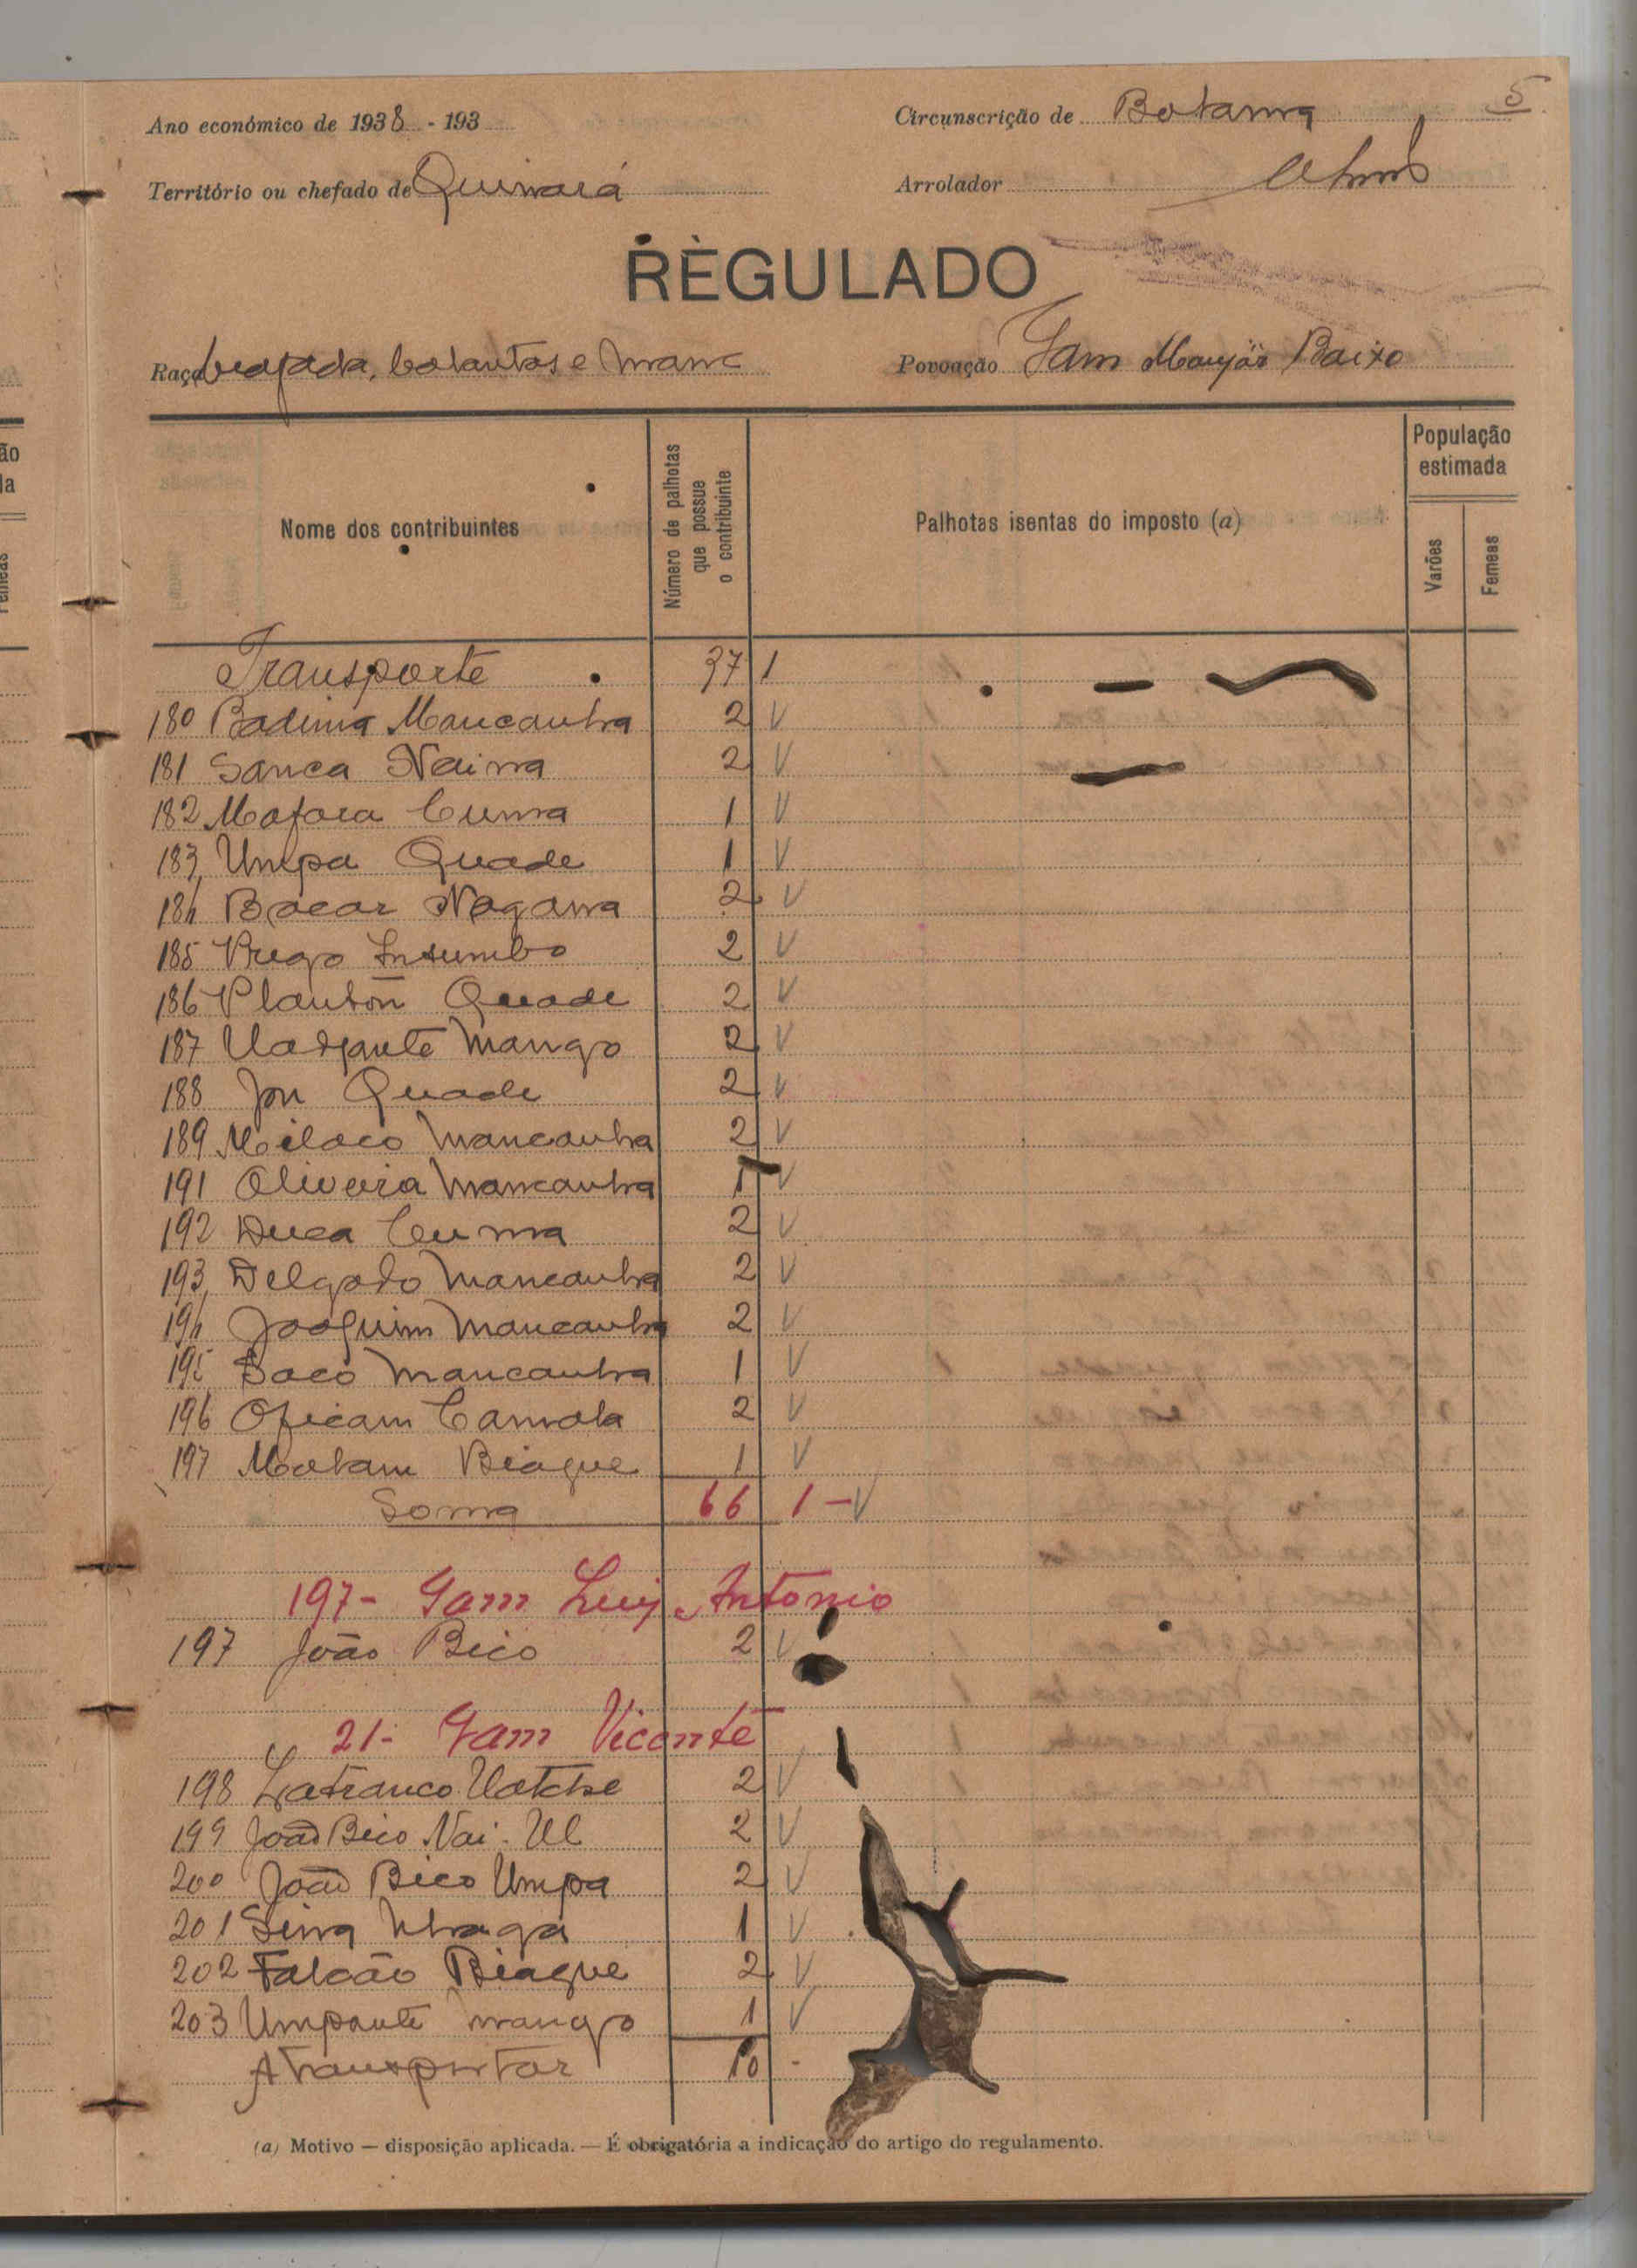 5
Ano económico de 1938 - 193
Circunscrição de Bolama
Território ou chefado de Quinará
Arrolador
REGULADO
Raça beafada, balantas e manc
Povoação Gam Manjôr Baixo
Nome dos contribuintes
Número de palhotas que possue o contribuinte
Palhotas isentas do imposto (a)
População estimada
Varões
Femeas
Transporte 37 1
180 Badinca Mancanha 2 V
181 Sanca Naina 2 V
182 Mafara Cuma 1 V
183 Umpa Quade 1 V
184 Bacar Nagana 2 V
185 Prego Insumbo 2 V
186 Planton Quade 2 V
187 Uadjante Mango 2 V
188 Jon Quade 2 V
189 Milaco Mancanha 2 V
191 Oliveira Mancanha 1 V
192 Duca Cuma 2 V
193 Delgado Mancanha 2 V
194 Joaquim Mancanha 2 V
195 Baco Mancanha 1 V
196 Oficam Camala 2 V
197 Matam Biague 1 V
Soma 66 1 - V
197 - Gam Luiz Antonio
197 João Bico 2 V
21 - Gam Vicente
198 Lafranco Uatche 2 V
199 João Bico Nai. Ul 2 V
200 João Bico Umpa 2 V
201 Sina Nhaga 1 V
202 Falcão Biague 2 V
203 Umpante mango 1 V
A Transportar 10 -
(a) Motivo — disposição aplicada. — É obrigatória a indicação do artigo do regulamento.